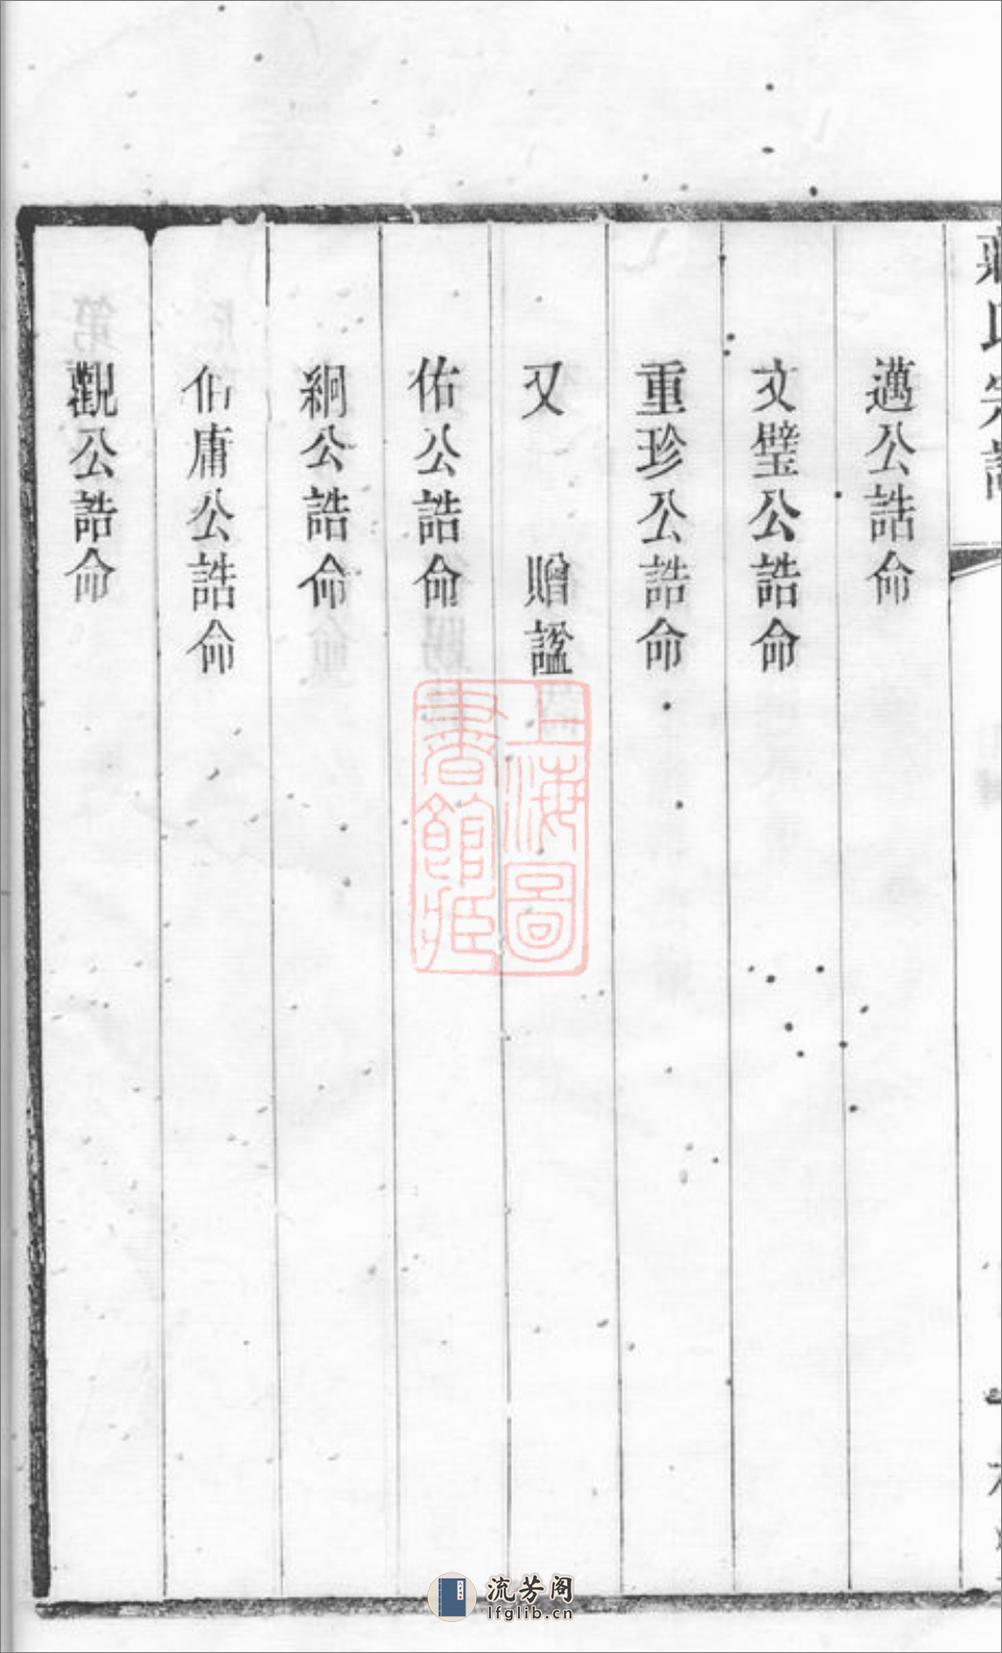 邁公誥命
文璧公誥命
重珍公誥命
又　贈諡
佑公誥命
絅公誥命
伯庸公誥命
觀公誥命
上海圖書館藏
流芳阁
lfglib.cn